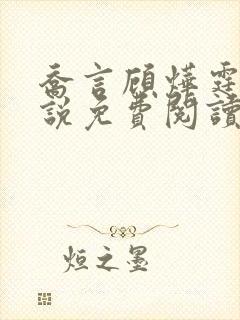 喬言顧燁霆
說免費閱讀
烜之墨